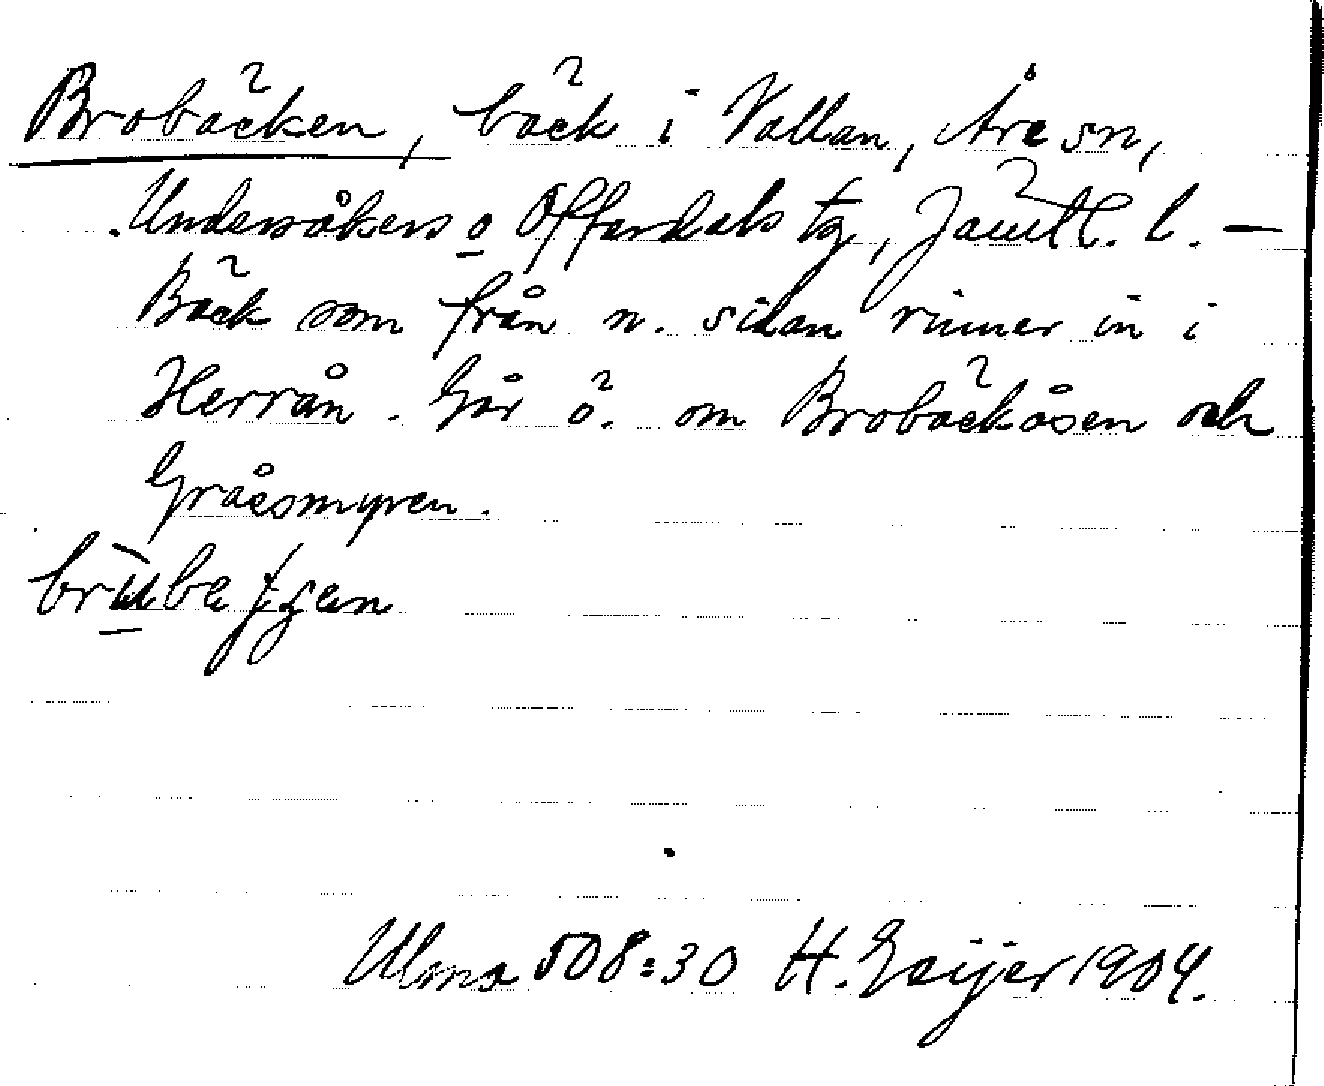 Brobäcken, bäck i Vallan, Åre sn,
Undersåkers o Offerdals tg, Jämtl. l. —
Bäck som från n. sidan rinner in i
Herrån. Går ö. om Brobäckåsen och
Gråesmyren.
Ulma 508:30 H. Geijer 1904.